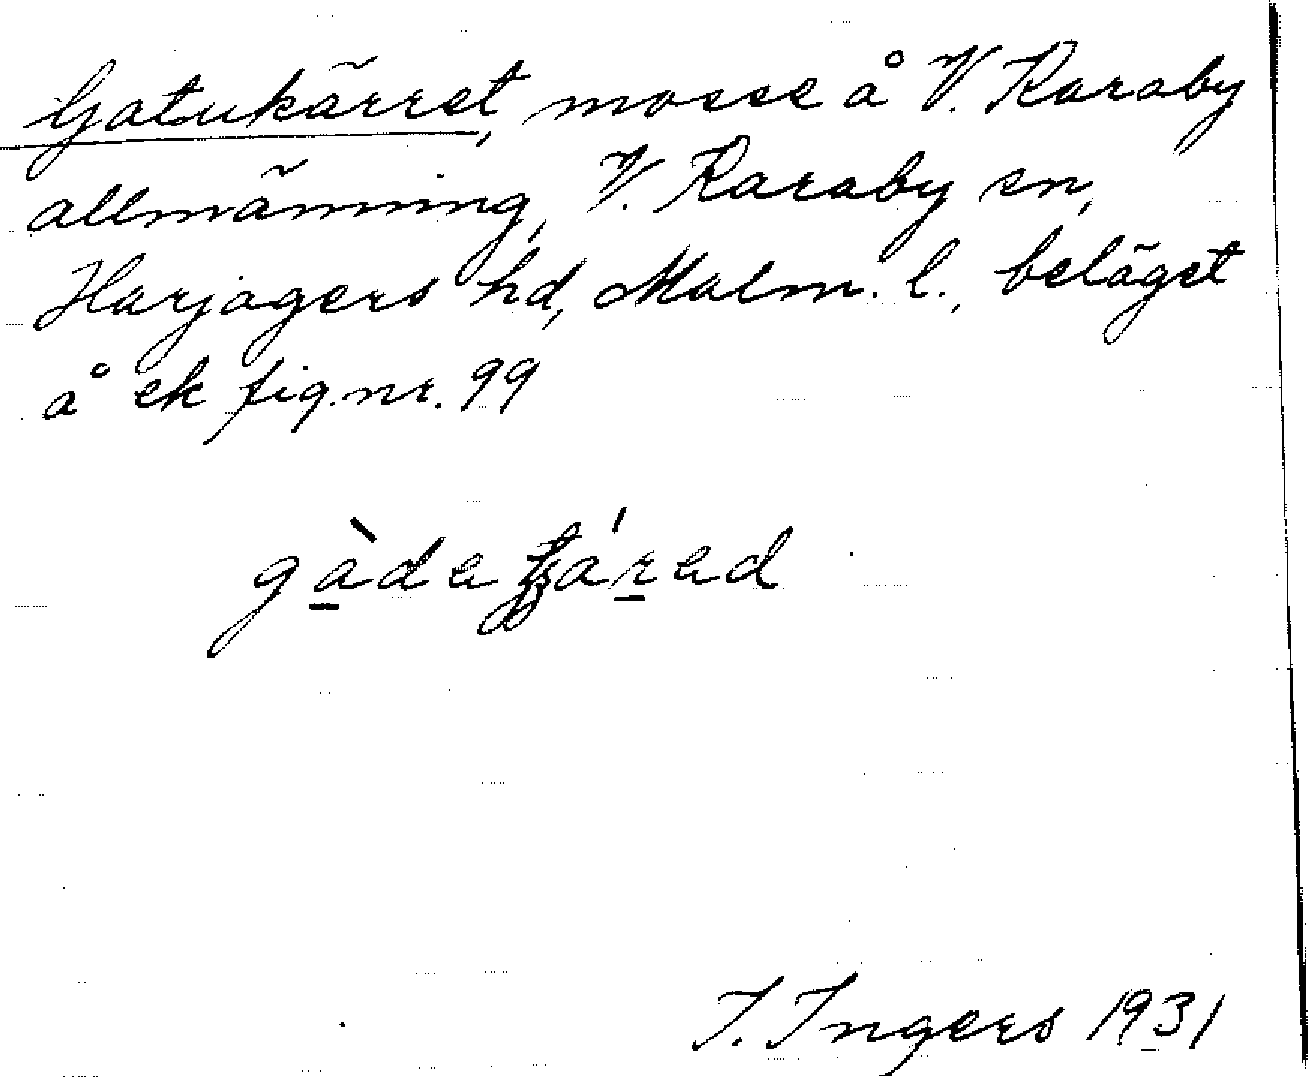 Gatukärret, mosse å V. Karaby
allmänning, V. Karaby sn,
Harjagers hd, Malm. l., beläget
å ek fig.nr. 99
I. Ingers 1931